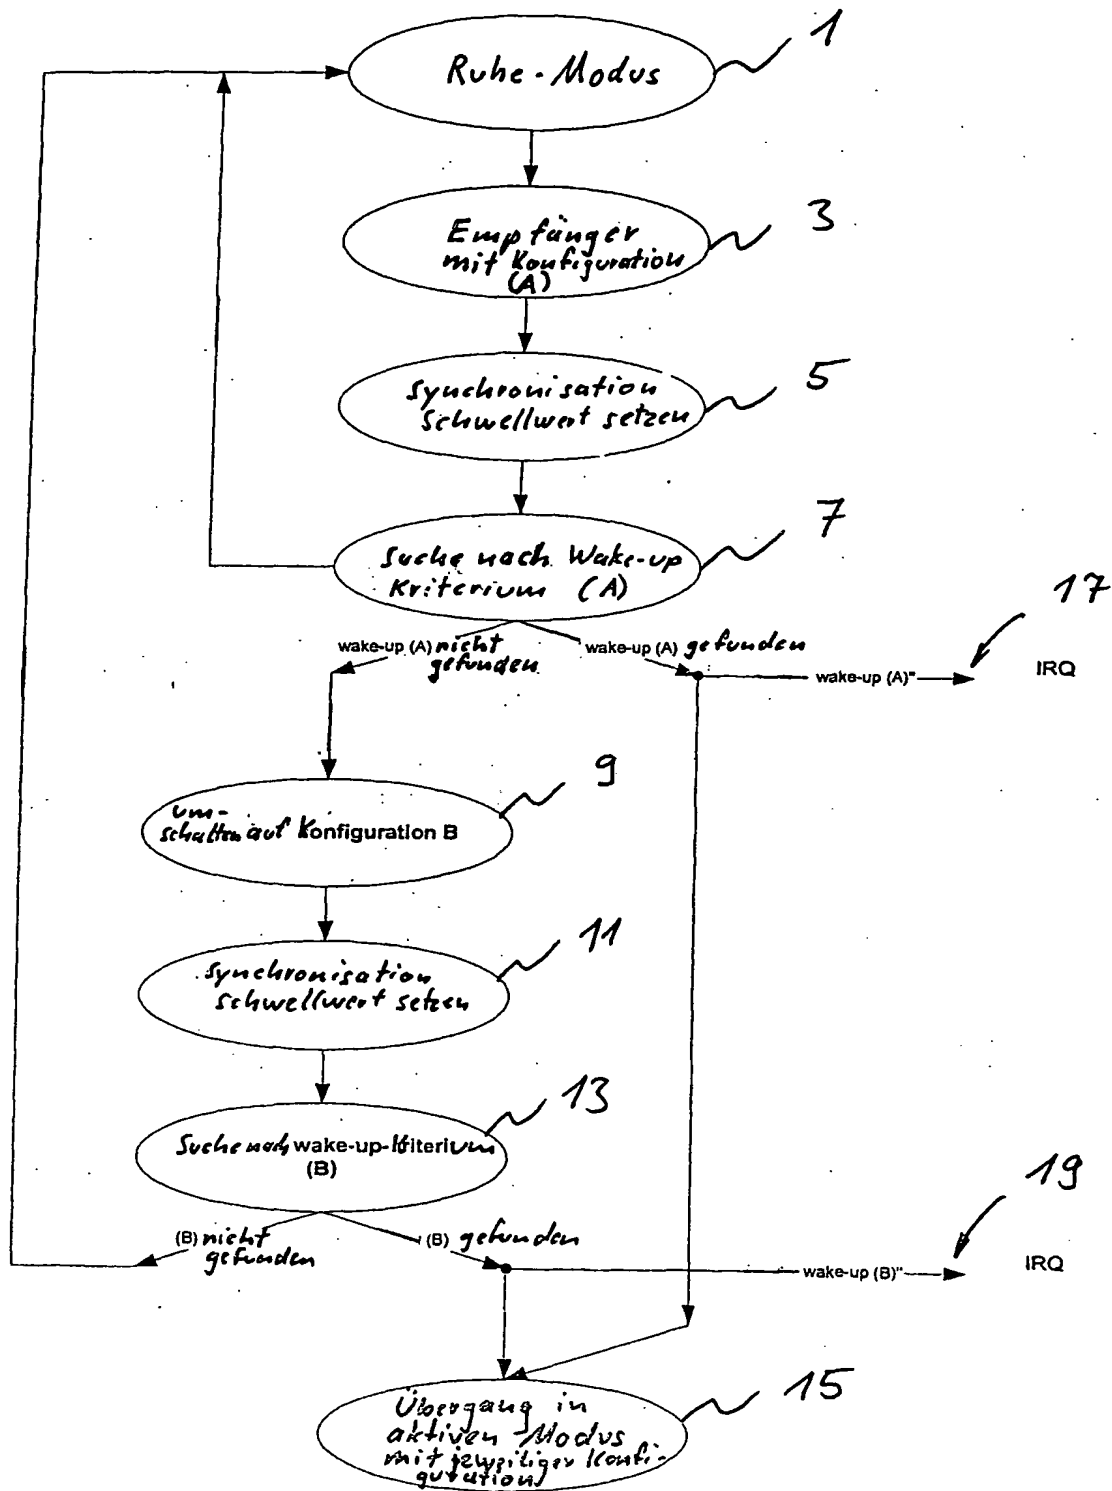 1
Ruhe-Modus
3
Empfänger
mit Konfiguration
(A)
5
Synchronisation
Schwellwert setzen
7
Suche nach Wake-up
Kriterium (A)
17
wake-up (A) nicht
gefunden
wake-up (A) gefunden
wake-up (A)"
IRQ
9
um-
schalten auf Konfiguration B
11
Synchronisation
Schwellwert setzen
13
Suche nach wake-up-Kriterium
(B)
19
(B) nicht
gefunden
(B) gefunden
wake-up (B)"
IRQ
15
Übergang in
aktiven Modus
mit jeweiliger Konfi-
guration